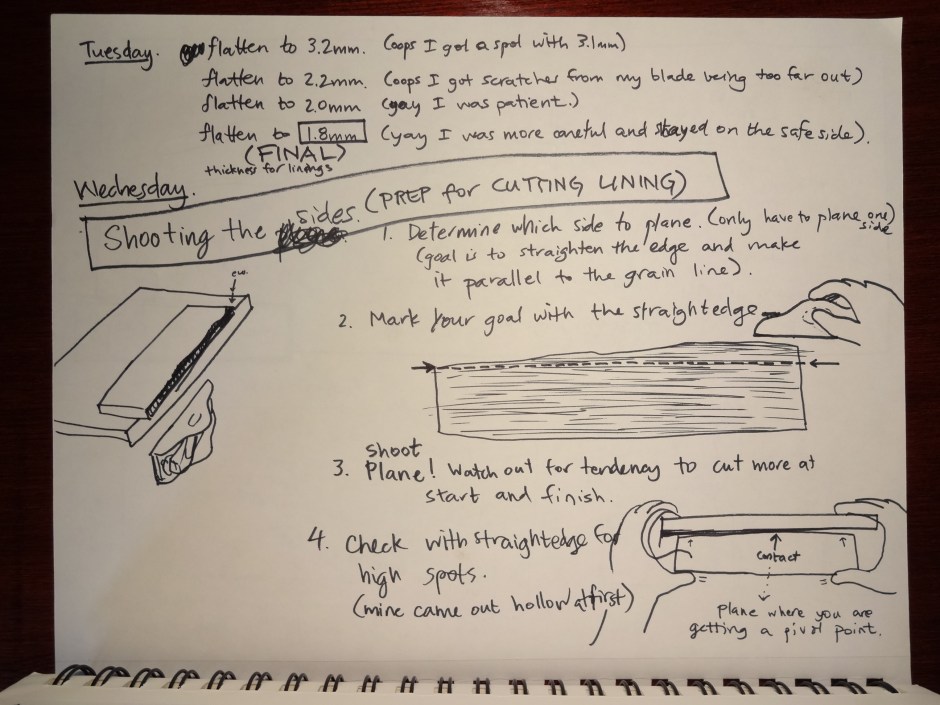 Tuesday. flatten to 3.2mm. (oops I got a spot with 3.1mm)
flatten to 2.2mm. (oops I got scratches from my blade being too far out)
flatten to 2.0mm (yay I was patient.)
flatten to 1.8mm (yay I was more careful and stayed on the safe side).
(FINAL)
thickness for linings
Wednesday.
Shooting the sides. (PREP for CUTTING LINING)
1. Determine which side to plane. (only have to plane one side)
(goal is to straighten the edge and make
it parallel to the grain line).
2. Mark your goal with the straightedge
3. shoot
Plane! Watch out for tendency to cut more at
start and finish.
4. Check with straightedge for
high spots.
(mine came out hollow at first)
contact
Plane where you are
getting a pivot point.